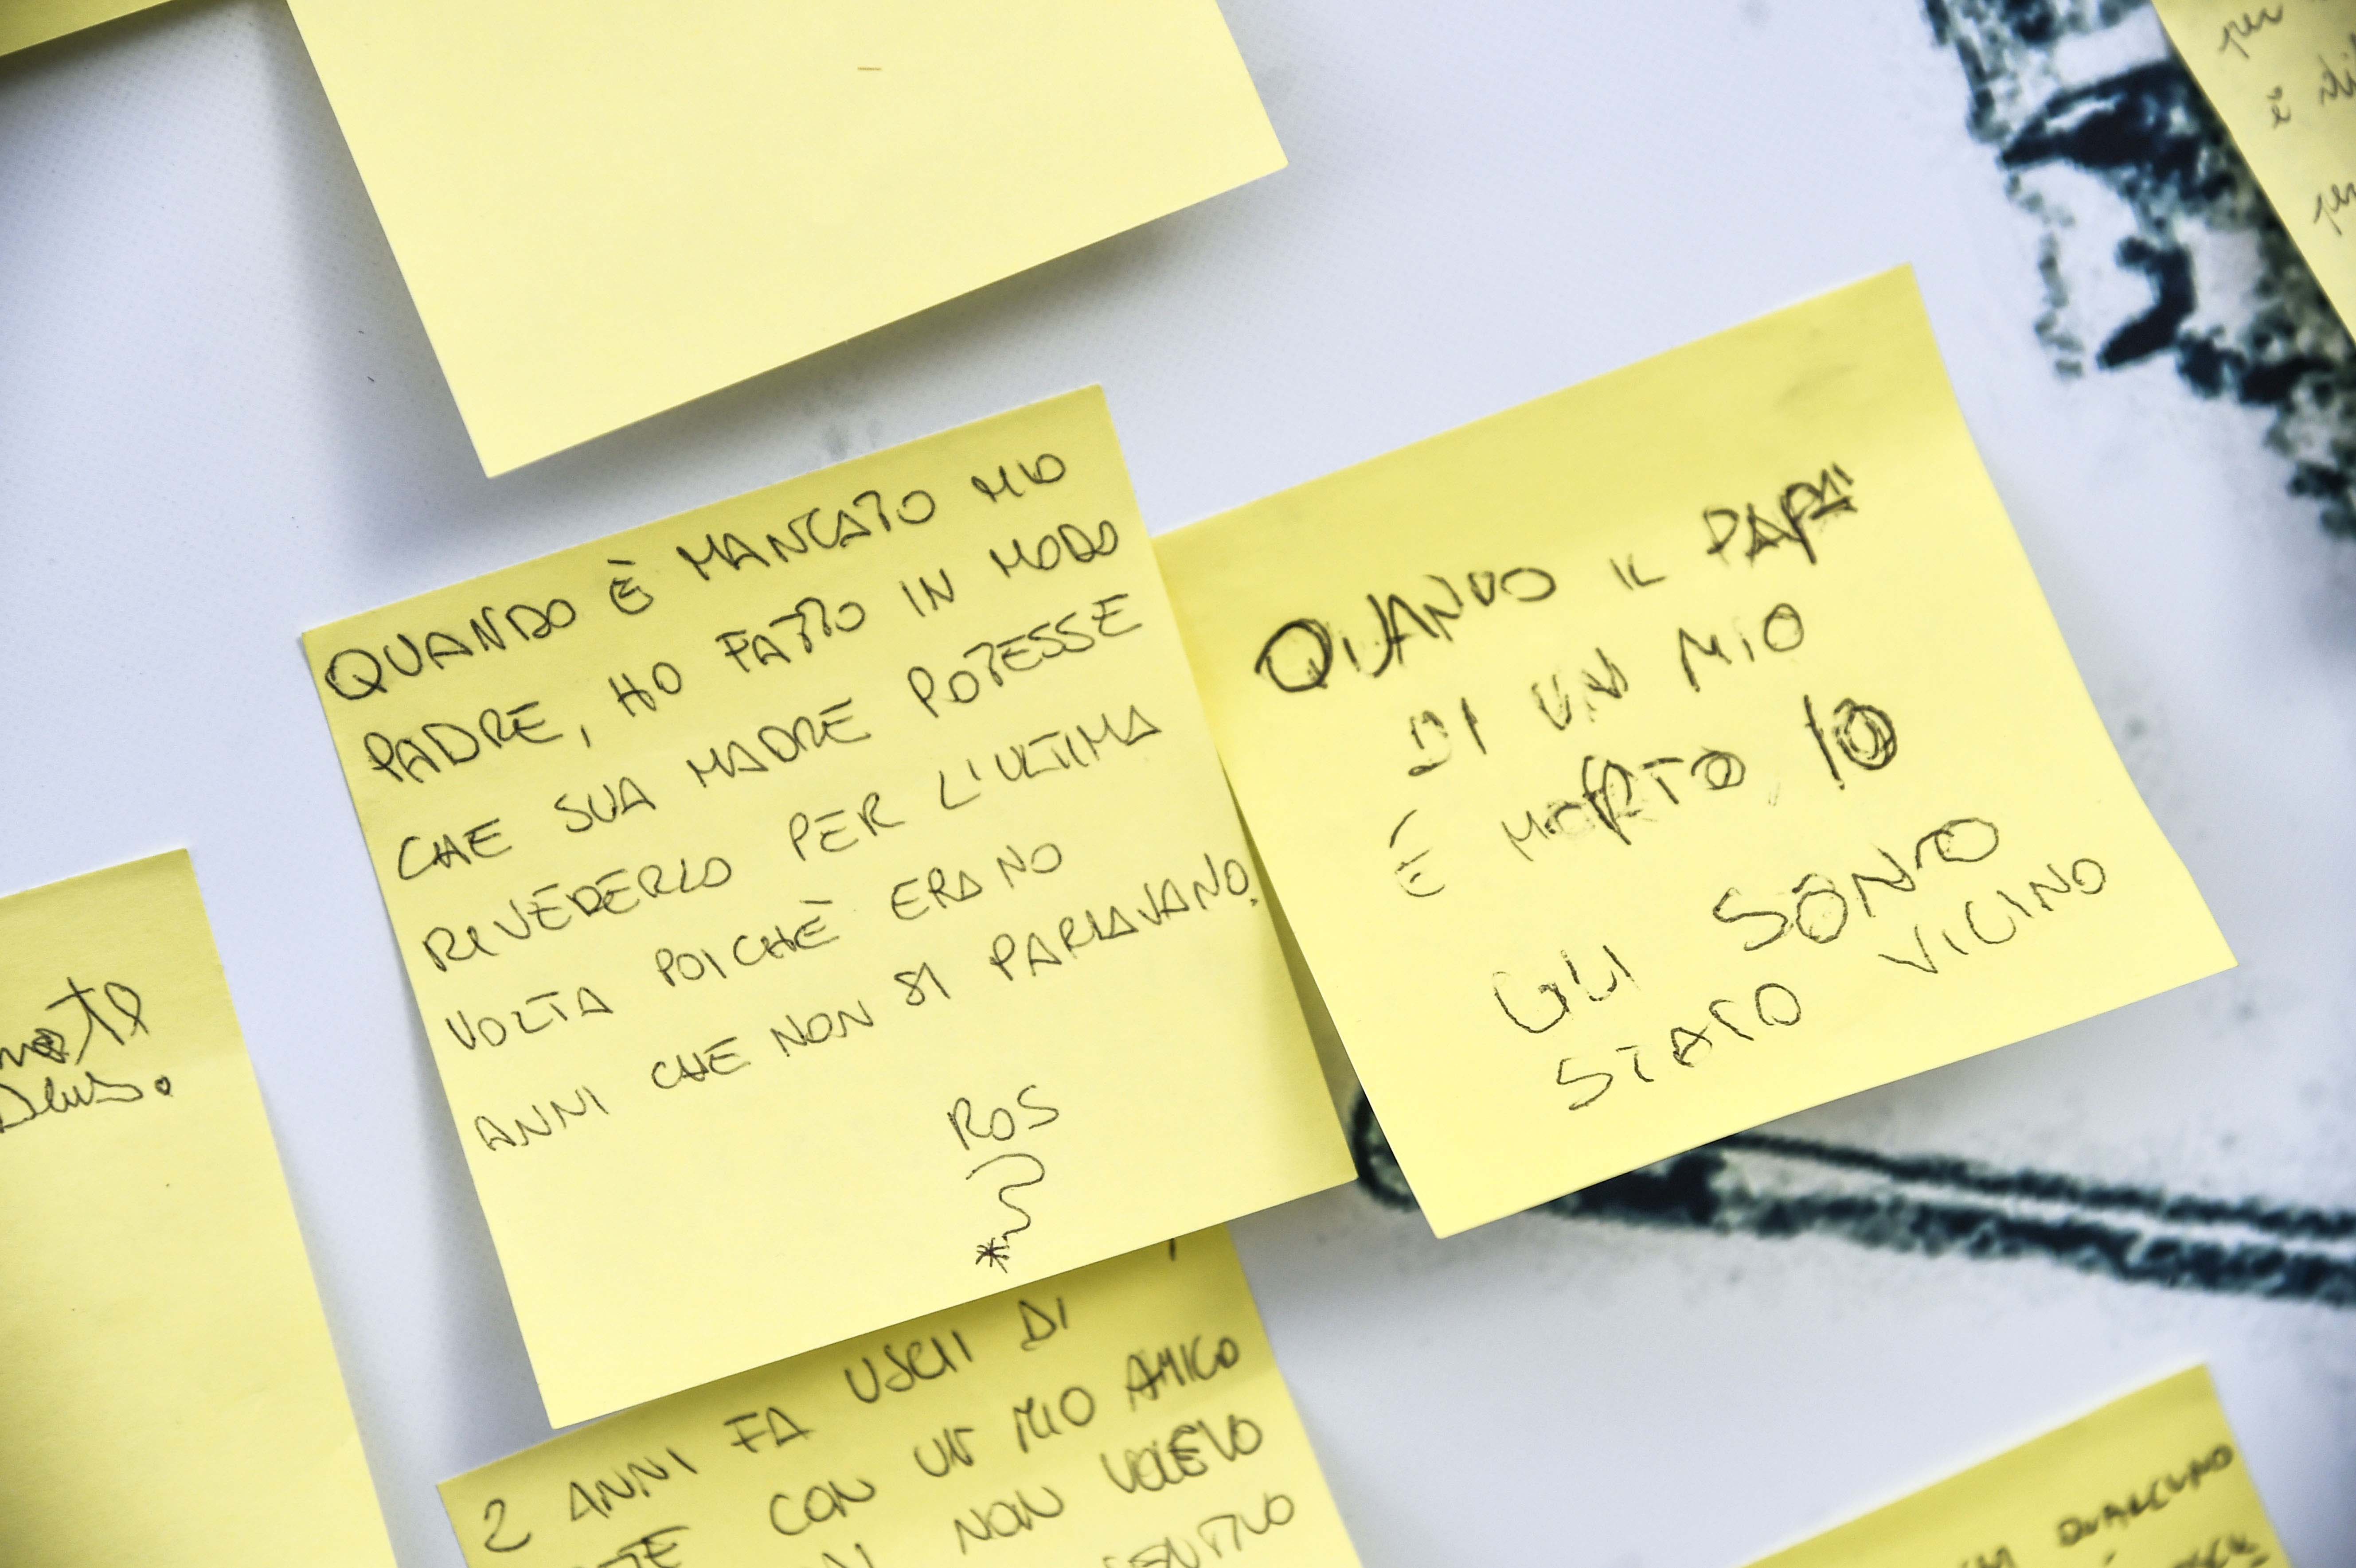 QUANDO È MANCATO MIO
PADRE, HO FATTO IN MODO
CHE SUA MADRE POTESSE
RIVEDERLO PER L'ULTIMA
VOLTA POICHÈ ERANO
ANNI CHE NON SI PARLAVANO.
ROS
QUANDO IL PAPA'
DI UN MIO
È MORTO, IO
GLI SONO
STATO VICINO
2 ANNI FA USCII DI
CON UN MIO AMICO
NON VOLEVO
per
è
QUALCUNO